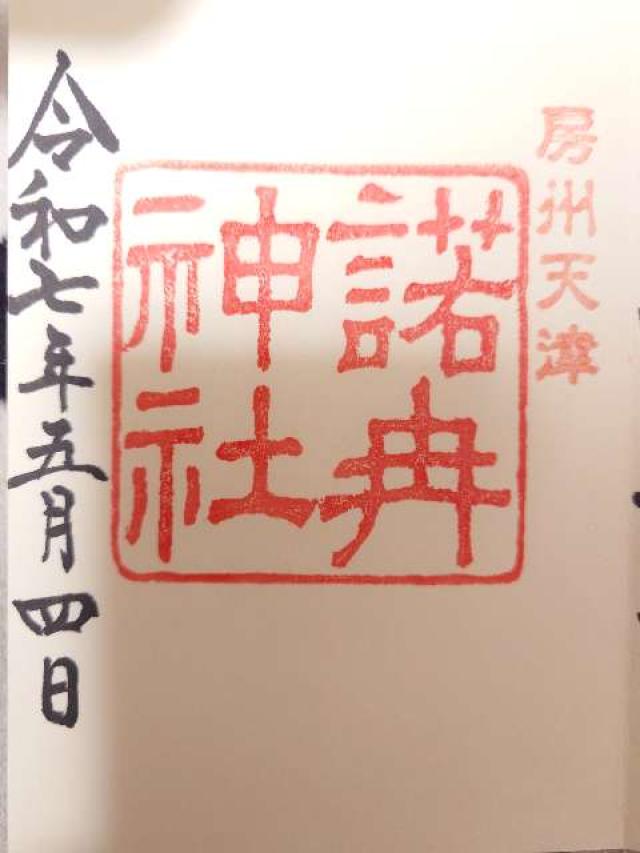 房州天津
諾冉
神社
令和七年五月四日